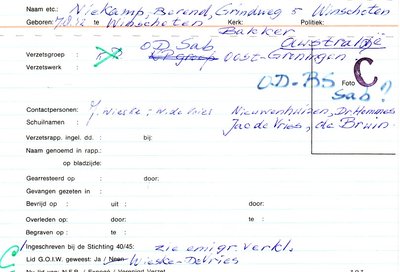 Naam etc.: Niekamp, Berend, Grindweg 5 Winschoten
Geboren: 7.8.12 te Winschoten Kerk: Politiek:
Bakker
Verzetsgroep : O.D. Sab. Australië
Verzetswerk : KP groep Oost-Groningen
O.D.-BS Foto C
Sab!
Contactpersonen: J. Wieske; W. de Vries Nieuwenhuizen, Dr. Hommes
Schuilnamen : Jac de Vries, de Bruin
Verzetsrapp. ingel. dd. : bij:
Naam genoemd in rapp.:
op bladzijde:
Gearresteerd op : door:
Gevangen gezeten in :
Bevrijd op : uit : door:
Overleden op: door: te :
Begraven op : te :
Ingeschreven bij de Stichting 40/45: zie emigr. verkl.
Lid G.O.I.W. geweest: Ja / Neen Wieske-DeVries